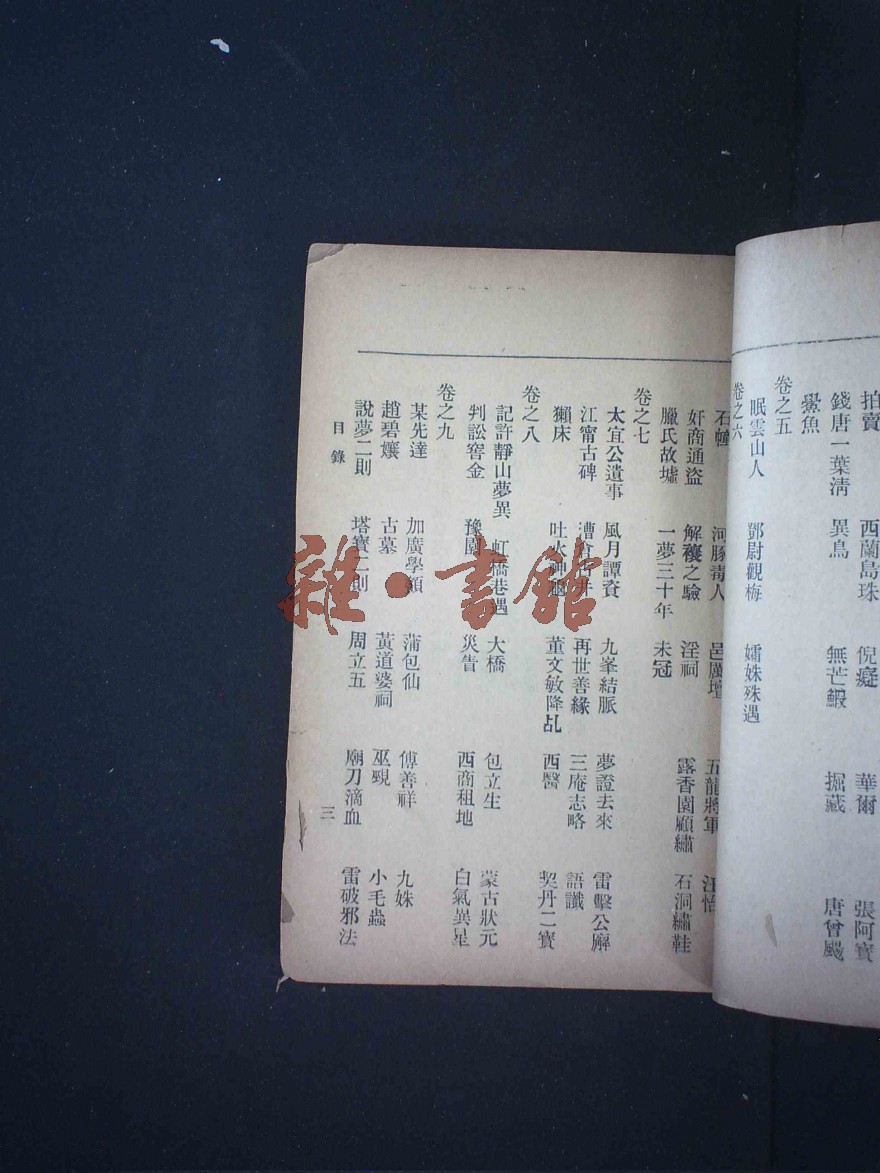 拍賣 西蘭島珠 倪癡 華爾 張阿寶
錢唐一葉淸 異鳥 無芒鰕 掘藏 唐曾颺
鱟魚
卷之五
眠雲山人 鄧尉觀梅 嬬姝殊遇
卷之六
石 河豚毒人 邑厲壇 五龍將軍 汪怡
奸商通盜 解穢之驗 淫祠 露香園顧繡 石洞繡鞋
臘氏故墟 一夢三十年 未冠
卷之七
太宜公遺事 風月譚資 九峯結脈 夢證去來 雷擊公廨
江甯古碑 漕倉 再世善緣 三庵志略 語讖
獺床 吐火神 董文敏降乩 西醫 契丹二寶
卷之八
記許靜山夢異 虹橋巷遇 大橋 包立生 蒙古狀元
判訟窖金 豫園 災眚 西商租地 白氣異星
卷之九
某先達 加廣學額 蒲包仙 傅善祥 九姝
趙碧孃 古墓 黃道婆祠 巫覡 小毛蟲
說夢二則 塔寶二則 周立五 廟刀滴血 雷破邪法
目錄 三
雜·書館